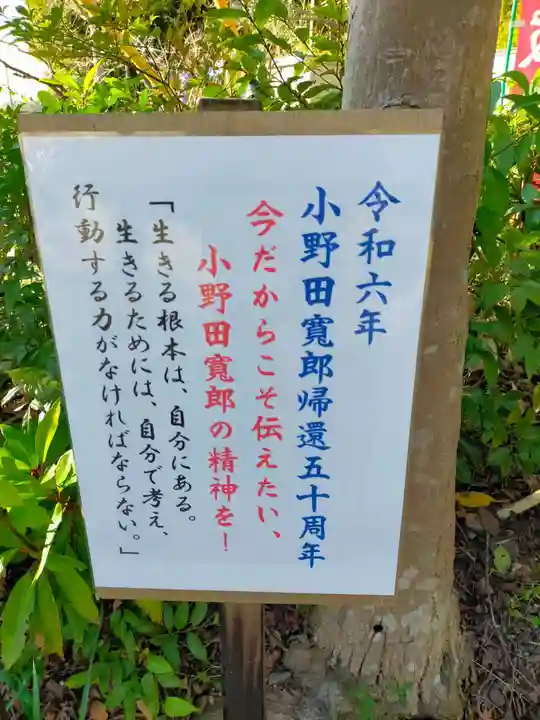 令和六年
小野田寛郎帰還五十周年
今だからこそ伝えたい、
小野田寛郎の精神を！
「生きる根本は、自分にある。
生きるためには、自分で考え、
行動する力がなければならない。」